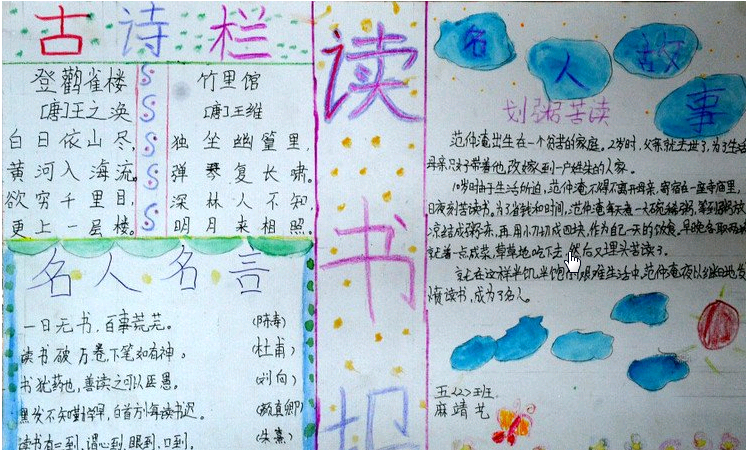 古诗栏
登鹳雀楼
[唐]王之涣
白日依山尽,
黄河入海流。
欲穷千里目,
更上一层楼。
竹里馆
[唐]王维
独坐幽篁里,
弹琴复长啸。
深林人不知
明月来相照。
名人名言
一日无书,百事荒芜。 (陈寿)
读书破万卷,下笔如有神。 (杜甫)
书犹药也,善读之可以医愚。 (刘向)
黑发不知勤学早,白首方悔读书迟。 (颜真卿)
读书有三到,谓心到,眼到,口到, (朱熹)
读书报
名人故事
划粥苦读
范仲淹出生在一个贫苦的家庭。2岁时,父亲就去世了,为了生活
母亲只好带着他改嫁到一户姓朱的人家。
10岁时由于生活所迫,范仲淹不得不离开母亲,寄宿在一座寺庙里,
日夜刻苦读书。为了省钱和时间,范仲淹每天煮一大碗稀粥,等到粥放
凉结成粥冻,再用小刀切成四块,作为自己一天的饭食,早晚各取两块
就着一点咸菜,草草地吃下去,然后又埋头苦读了。
就在这样半饥半饱的艰难生活中,范仲淹夜以继日地发
愤读书,成为了名人。
五<2>班
麻靖艺